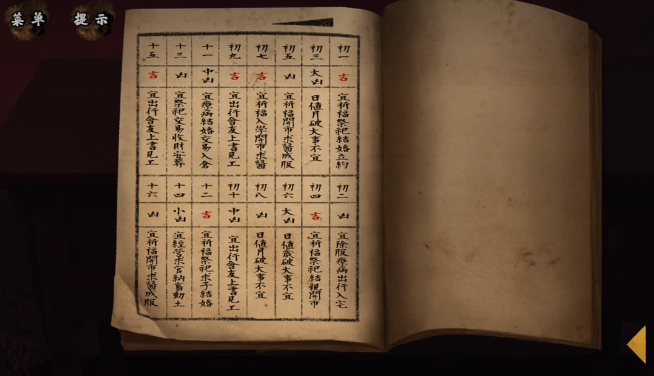 菜单
提示
初一
吉
宜祈福祭祀結婚立約
初三
大凶
日值月破大事不宜
初五
凶
宜祈福開市求醫成服
初七
吉
宜祈福入學開市求醫
初九
吉
宜出行會友上書見工
十一
中凶
宜療病結婚交易入倉
十三
凶
宜祭祀交易收財安葬
十五
吉
宜出行會友上書見工
初二
凶
宜除服療病出行入宅
初四
吉
宜祈福祭祀結親開市
初六
大凶
日值歲破大事不宜
初八
凶
日值月破大事不宜
初十
中凶
宜出行會友上書見工
十二
吉
宜祈福祭祀求子結婚
十四
小凶
宜經營求官納畜動土
十六
凶
宜祈福開市求醫成服